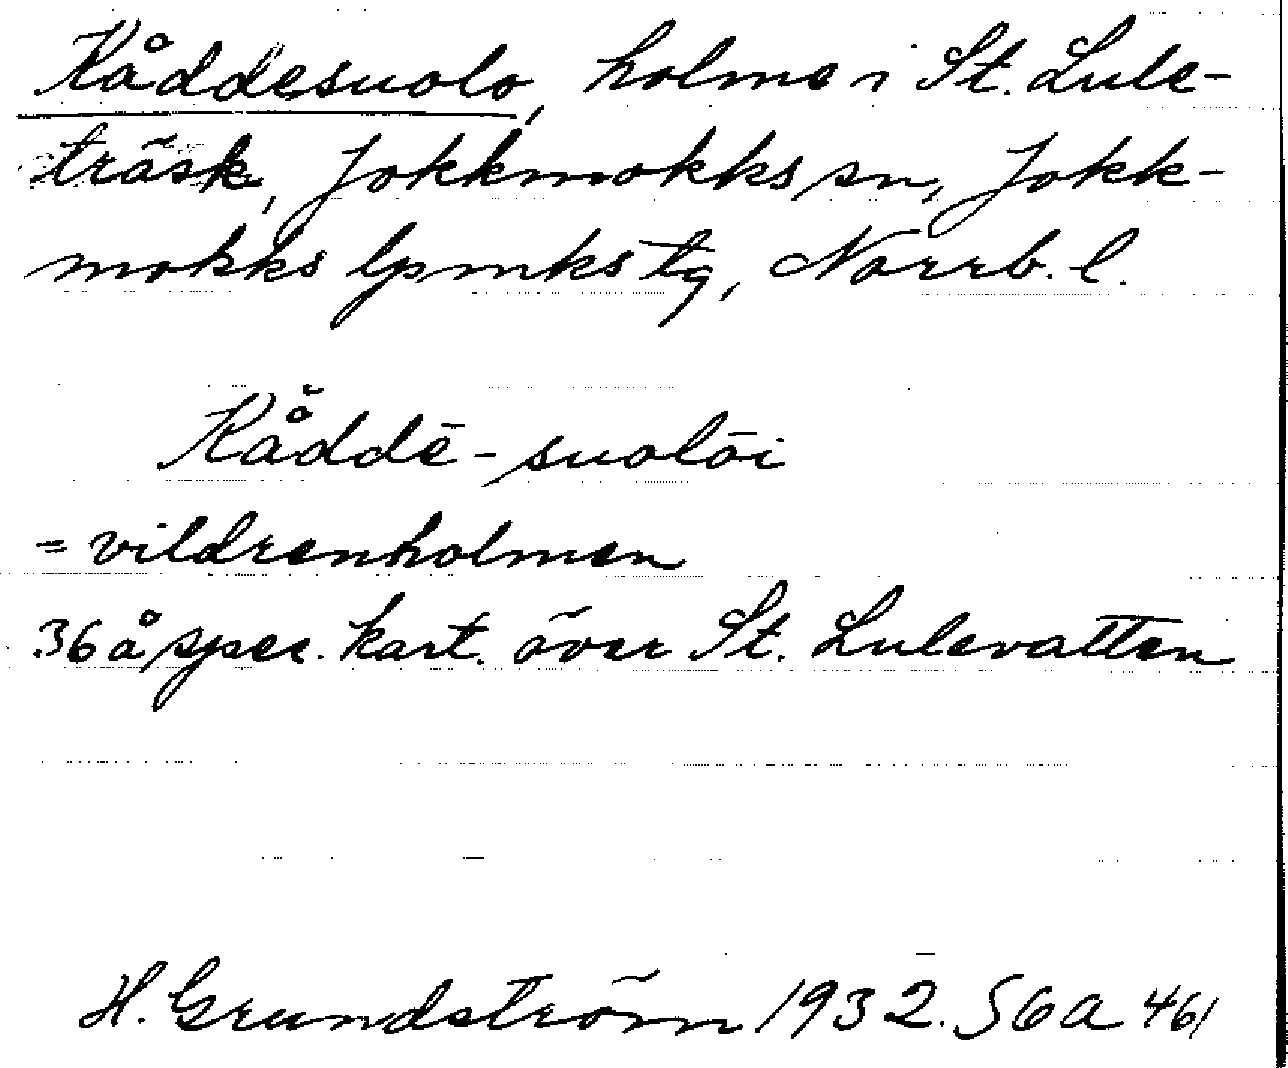 Kåddesuolo, holme i St. Lule-
träsk, Jokkmokks sn, Jokk-
mokks lpmks tg, Norrb. l.
Kå̆ddē-suolōi
= vildrenholmen
36 å spec. kart. över St. Lulevatten
H. Grundström 1932. S6a 461